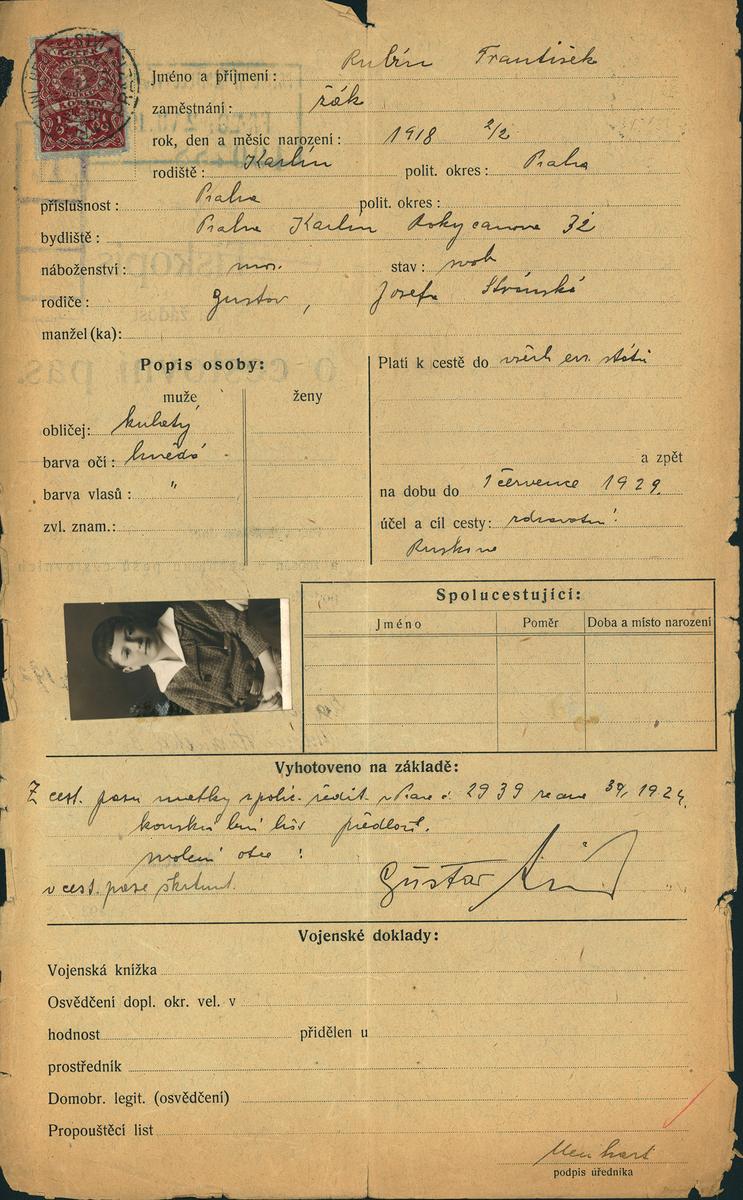 Jméno a příjmení: Rubín František
zaměstnání: žák
rok, den a měsíc narození: 1918 2/2
rodiště: Karlín polit. okres: Praha
příslušnost: Praha polit. okres:
bydliště: Praha Karlín Rokycanova 32
náboženství: mos. stav: svob
rodiče: Gustav, Josefa Stránská
manžel(ka):
Popis osoby:
muže ženy
obličej: kulatý
barva očí: hnědé
barva vlasů: "
zvl. znam.:
Platí k cestě do všech evr. států
a zpět
na dobu do 1 července 1929.
účel a cíl cesty: zdravotní
Spolucestující:
Jméno Poměr Doba a místo narození
Vyhotoveno na základě:
Z cest. pasu matky polic. ředit. v Praze č. 2939
předlož.
svolení otce:
v cest. pase škrtnut.
Gustav
Vojenské doklady:
Vojenská knížka
Osvědčení dopl. okr. vel. v
hodnost přidělen u
prostředník
Domobr. legit. (osvědčení)
Propouštěcí list
Menhart
podpis úředníka